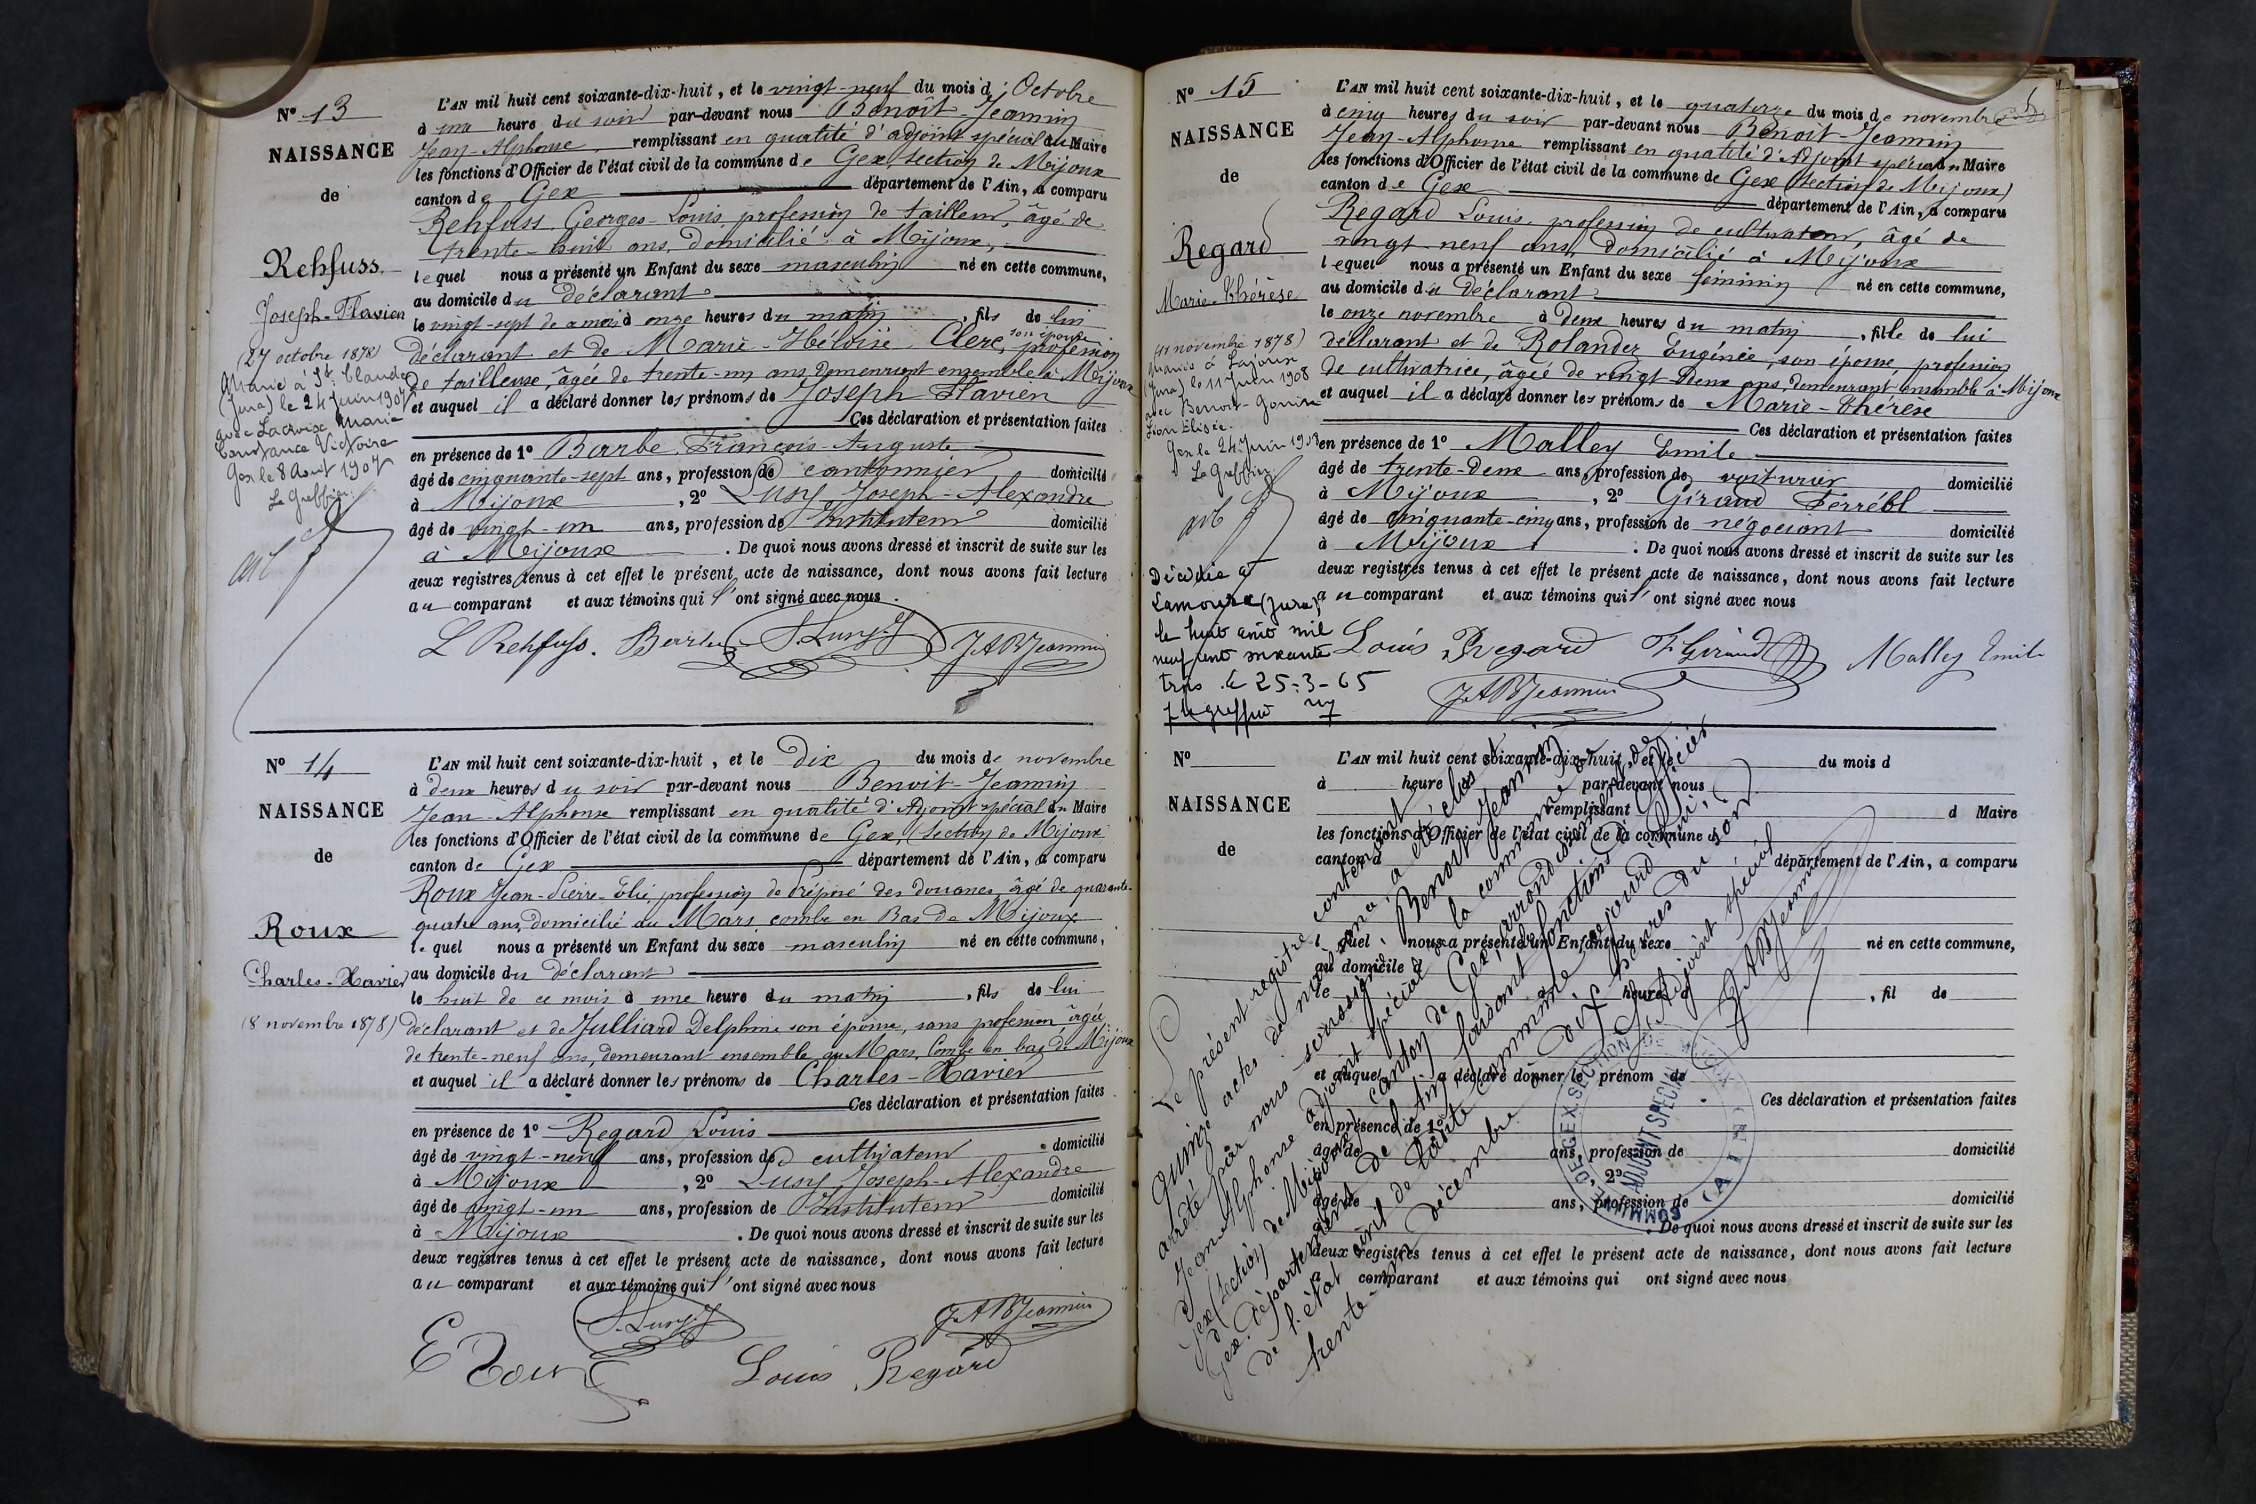 N° 13
NAISSANCE
de
Rehfuss.
Joseph-Flavien
(27 octobre 1878)
Marié à St. Claude
(Jura) le 24 Juin 1907
avec Lacroix Marie
Constance Victoire
Gex le 8 Aout 1907
Le Greffier
L'AN mil huit cent soixante-dix-huit, et le vingt-neuf du mois d'Octobre
à une heure du soir par-devant nous Benoit-Jeannin
Jean-Alphonse remplissant en qualité d'adjoint spécial du Maire
les fonctions d'Officier de l'état civil de la commune de Gex, Section de Mijoux
canton de Gex département de l'Ain, a comparu
Rehfuss Georges-Louis, profession de tailleur, âgé de
trente-huit ans, domicilié à Mijoux,
lequel nous a présenté un Enfant du sexe masculin né en cette commune,
au domicile du déclarant
le vingt-sept de ce mois à onze heures du matin, fils de lui
déclarant et de Marie-Héloïse Clerc, son épouse profession
de tailleuse, âgée de trente-un ans, demeurant ensemble à Mijoux
et auquel il a déclaré donner les prénoms de Joseph Flavien
Ces déclaration et présentation faites
en présence de 1° Barbe François-Auguste
âgé de cinquante-sept ans, profession de cantonnier domicilié
à Mijoux, 2° Lusy Joseph-Alexandre
âgé de vingt-un ans, profession de Instituteur domicilié
à Mijoux. De quoi nous avons dressé et inscrit de suite sur les
deux registres tenus à cet effet le présent acte de naissance, dont nous avons fait lecture
au comparant et aux témoins qui l'ont signé avec nous.
L Rehfuss. Barbe J. Lusy JABJeannin
N° 14
NAISSANCE
de
Roux
Charles-Xavier
(8 novembre 1878)
L'AN mil huit cent soixante-dix-huit, et le Dix du mois de novembre
à deux heures du soir par-devant nous Benoit-Jeannin
Jean-Alphonse remplissant en qualité d'Adjoint spécial du Maire
les fonctions d'Officier de l'état civil de la commune de Gex, Section de Mijoux
canton de Gex département de l'Ain, a comparu
Roux Jean-Pierre-Elie, profession de Préposé des douanes, âgé de quarante-
quatre ans, domicilié au Mars, combe en Bas de Mijoux
lequel nous a présenté un Enfant du sexe masculin né en cette commune,
au domicile du déclarant
le huit de ce mois à une heure du matin, fils de lui
déclarant et de Julliard Delphine son épouse, sans profession âgée
de trente-neuf ans, demeurant ensemble au Mars, Combe en bas de Mijoux
et auquel il a déclaré donner les prénoms de Charles-Xavier
Ces déclaration et présentation faites
en présence de 1° Regard Louis
âgé de vingt-neuf ans, profession de cultivateur domicilié
à Mijoux, 2° Lusy Joseph-Alexandre
âgé de vingt-un ans, profession de Instituteur domicilié
à Mijoux. De quoi nous avons dressé et inscrit de suite sur les
deux registres tenus à cet effet le présent acte de naissance, dont nous avons fait lecture
au comparant et aux témoins qui l'ont signé avec nous
J. Lusy JABJeannin
E Roux Louis Regard
N° 15
NAISSANCE
de
Regard
Marie-Thérèse
(11 novembre 1878)
Mariée à Lajoux
(Jura) le 11 Juin 1908
avec Benoit-Gonin
Léon Elisée.
Gex le 24 Juin 1908
Le Greffier
Décédée à
Lamoura (Jura)
le huit août mil
neuf cent soixante
trois. le 25-3-65
le greffier
L'AN mil huit cent soixante-dix-huit, et le quatorze du mois de novembre
à cinq heures du soir par-devant nous Benoit-Jeannin
Jean-Alphonse remplissant en qualité d'Adjoint spécial du Maire
les fonctions d'Officier de l'état civil de la commune de Gex (Section de Mijoux)
canton de Gex département de l'Ain, a comparu
Regard Louis, profession de cultivateur, âgé de
vingt-neuf ans, domicilié à Mijoux
lequel nous a présenté un Enfant du sexe féminin né en cette commune,
au domicile du déclarant
le onze novembre à deux heures du matin, fille de lui
déclarant et de Rolandez Eugénie, son épouse, profession
de cultivatrice, âgée de vingt-deux ans, demeurant ensemble à Mijoux
et auquel il a déclaré donner les prénoms de Marie-Thérèse
Ces déclaration et présentation faites
en présence de 1° Malley Emile
âgé de trente-deux ans, profession de voiturier domicilié
à Mijoux, 2° Giraud Ferréol
âgé de cinquante-cinq ans, profession de négociant domicilié
à Mijoux. De quoi nous avons dressé et inscrit de suite sur les
deux registres tenus à cet effet le présent acte de naissance, dont nous avons fait lecture
au comparant et aux témoins qui l'ont signé avec nous
Louis Regard F. Giraud Malley Emile
JABJeannin
N°
NAISSANCE
de
L'AN mil huit cent soixante-dix-huit, et le du mois d
à heure par-devant nous
remplissant d Maire
les fonctions d'Officier de l'état civil de la commune d
canton d département de l'Ain, a comparu
l quel nous a présenté un Enfant du sexe né en cette commune,
au domicile d
le heure d , fil de
et auquel a déclaré donner le prénom de
Ces déclaration et présentation faites
en présence de 1°
âgé de ans, profession de domicilié
, 2°
âgé de ans, profession de domicilié
à . De quoi nous avons dressé et inscrit de suite sur les
deux registres tenus à cet effet le présent acte de naissance, dont nous avons fait lecture
a comparant et aux témoins qui ont signé avec nous
Le présent registre contenant
quinze actes de naissance a été clos et
arrêté par nous soussigné, Benoit Jeannin
Jean-Alphonse adjoint spécial de la commune de
Gex (Section de Mijoux) canton de Gex, arrondissement de
Gex, département de l'Ain, faisant fonctions d'officier
de l'état civil de ladite commune, aujourd'hui,
trente-un décembre à dix heures du soir
L'Adjoint spécial
JABJeannin
COMMUNE DE GEX. SECTION DE MIJOUX
ADJOINT SPECIAL
(AIN)